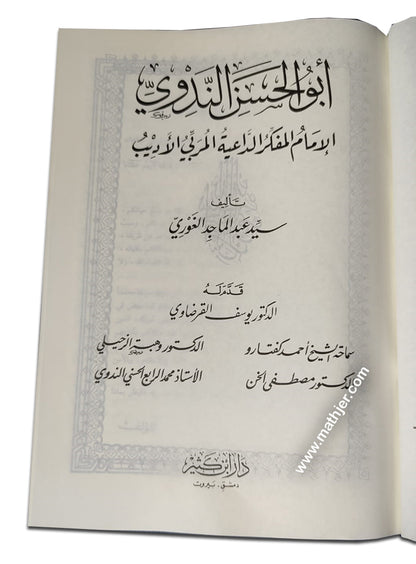 أبو الحسن الندوي
الإمام المفكر الداعية المربي الأديب
تأليف
سيد عبد الماجد الغوري
قدم له
الدكتور يوسف القرضاوي
سماحة الشيخ أحمد كفتارو الدكتور وهبة الزحيلي
الدكتور مصطفى الخن الأستاذ محمد الرابع الحسني الندوي
دار ابن كثير
دمشق - بيروت
www.mathjer.com